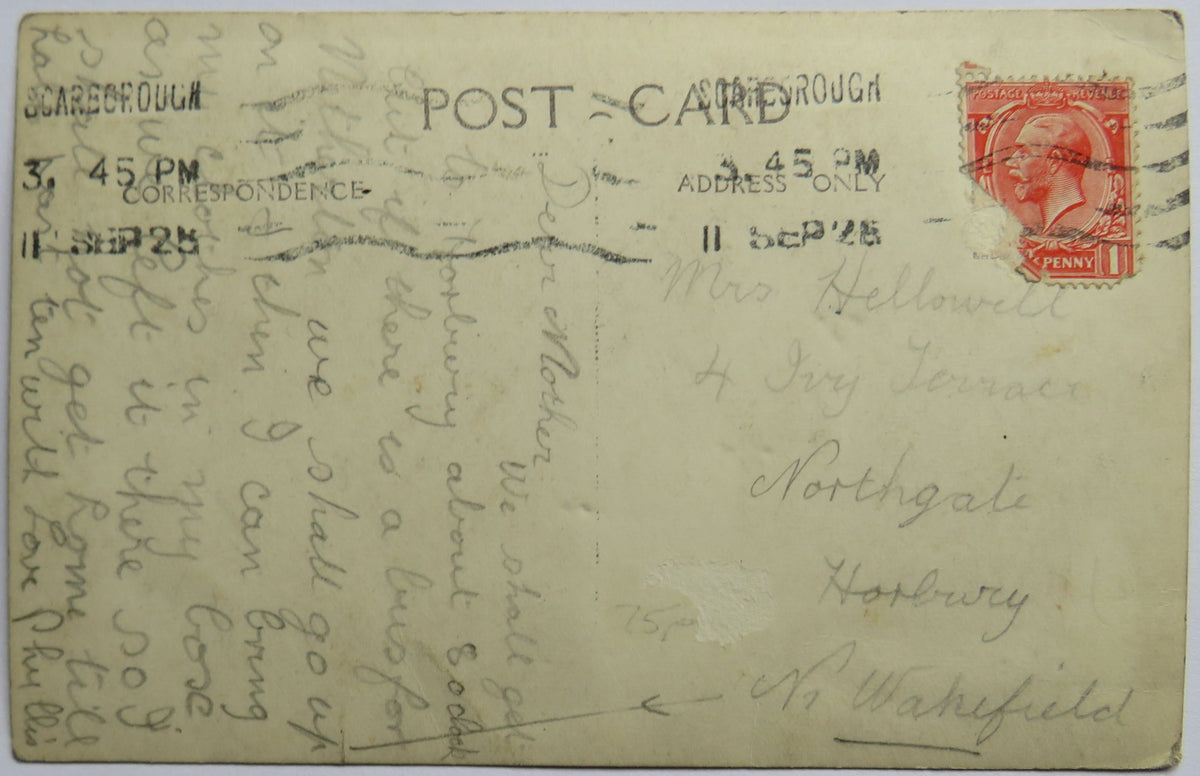 POST CARD
CORRESPONDENCE
ADDRESS ONLY
SCARBOROUGH
3. 45 PM
11 SEP 25
SCARBOROUGH
3. 45 PM
11 SEP 25
POSTAGE REVENUE
PENNY 1
Mrs Hellowell
4 Ivy Terrace
Northgate
Horbury
Nr Wakefield
75p
Dear Mother
We shall get
to Horbury about 8 oclock
but if there is a bus for
we shall go up
on it then I can bring
my clothes in my box
as we left it there so I
shall not get home till
half past ten with love Phyllis